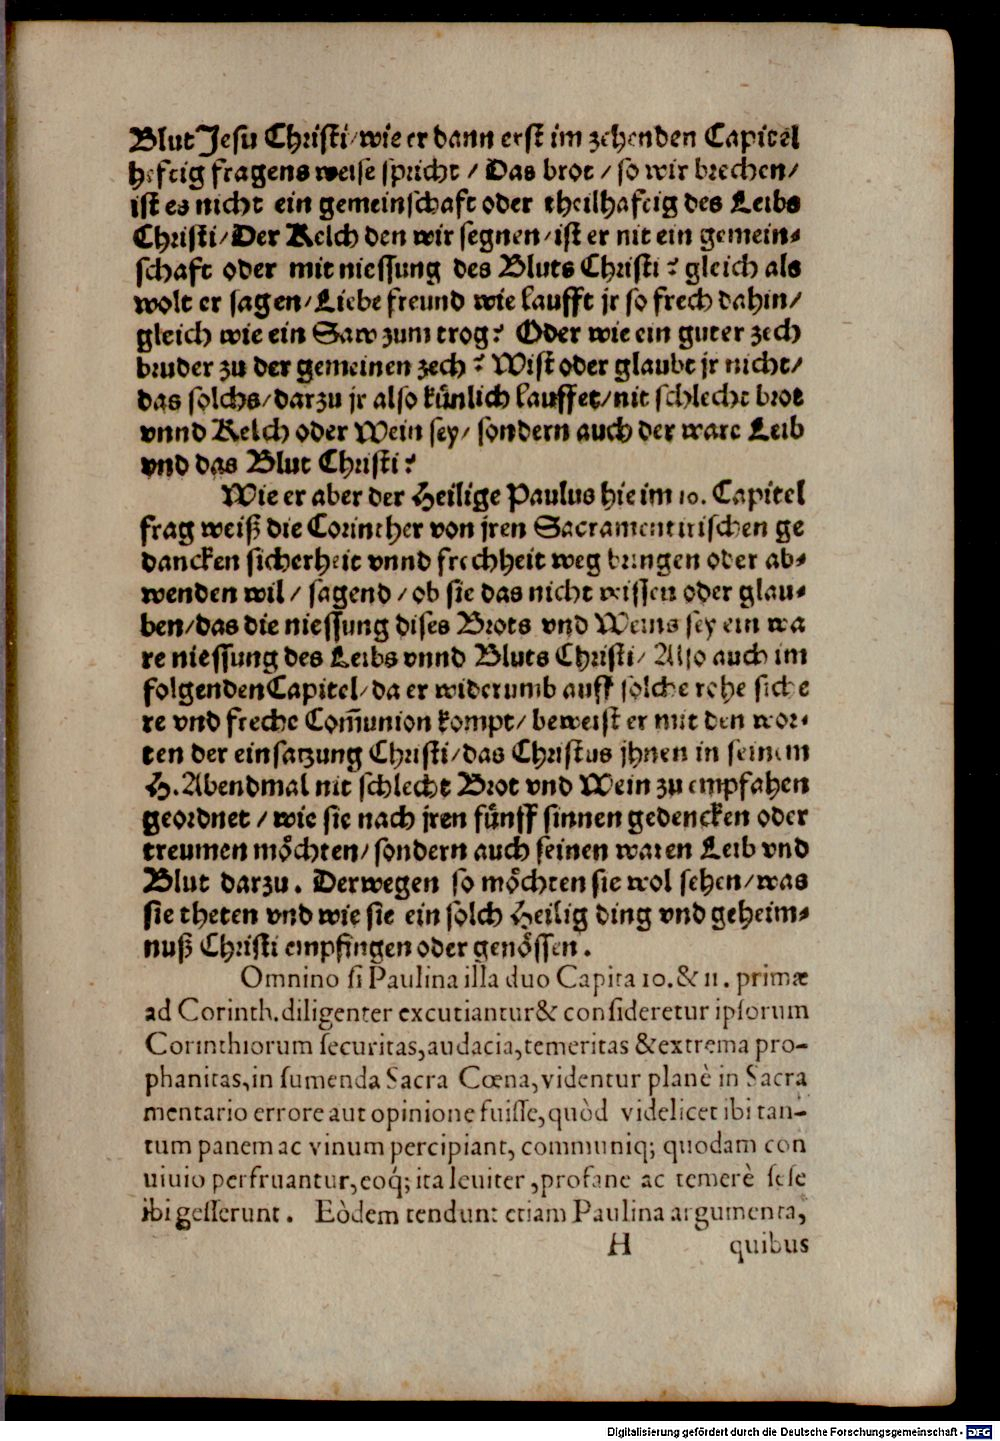 Blut Jesu Christi/ wie er dann erst im zehenden Capitel
heftig fragens weise spricht / Das brot / so wir brechen/
ist es nicht ein gemeinschaft oder theilhaftig des Leibs
Christi/ Der Kelch den wir segnen/ ist er nit ein gemein⸗
schaft oder mit niessung des Bluts Christi? gleich als
wolt er sagen/ Liebe freund wie laufft jr so frech dahin/
gleich wie ein Saw zum trog? Oder wie ein guter zech
bruder zu der gemeinen zech? Wist oder glaubt jr nicht/
das solchs/ darzu jr also künlich lauffet/ nit schlecht brot
vnnd Kelch oder Wein sey/ sondern auch der ware Leib
vnd das Blut Christi?
Wie er aber der Heilige Paulus hie im 10. Capitel
frag weiß die Corinther von jren Sacramentirischen ge
dancken sicherheit vnnd frechheit weg bringen oder ab⸗
wenden wil / sagend / ob sie das nicht wissen oder glau⸗
ben/ das die niessung dises Brots vnd Weins sey ein wa
re niessung des Leibs vnnd Bluts Christi/ Also auch im
folgenden Capitel/ da er widerumb auff solche rohe siche
re vnd freche Com̃union kompt/ beweist er mit den wor⸗
ten der einsatzung Christi/ das Christus jhnen in seinem
H. Abendmal nit schlecht Brot vnd Wein zu empfahen
geordnet / wie sie nach jren fünff sinnen gedencken oder
treumen möchten/ sondern auch seinen waren Leib vnd
Blut darzu. Derwegen so möchten sie wol sehen/ was
sie theten vnd wie sie ein solch Heilig ding vnd geheim⸗
nuß Christi empfingen oder genössen.
Omnino si Paulina illa duo Capita 10. & 11. primæ
ad Corinth. diligenter excutiantur & consideretur ipsorum
Corinthiorum securitas, audacia, temeritas & extrema pro-
phanitas, in sumenda Sacra Cœna, videntur planè in Sacra
mentario errore aut opinione fuisse, quòd videlicet ibi tan-
tum panem ac vinum percipiant, communiq; quodam con
uiuio perfruantur, eoq́; ita leuiter, profane ac temerè sese
ibi gesserunt. Eòdem tendunt etiam Paulina argumenta,
H quibus
Digitalisierung gefördert durch die Deutsche Forschungsgemeinschaft - DFG